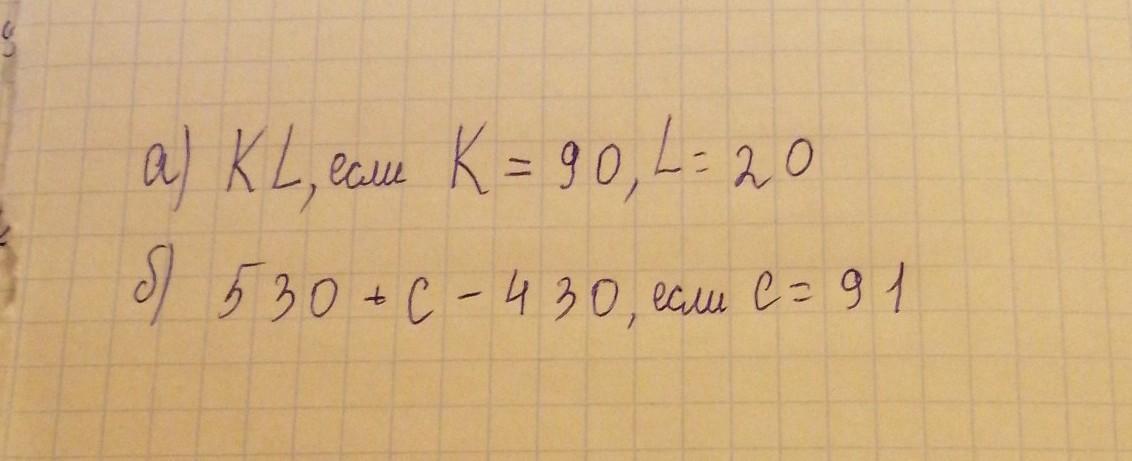 а) KL, если K = 90, L = 20
б) 530 + c - 430, если c = 91